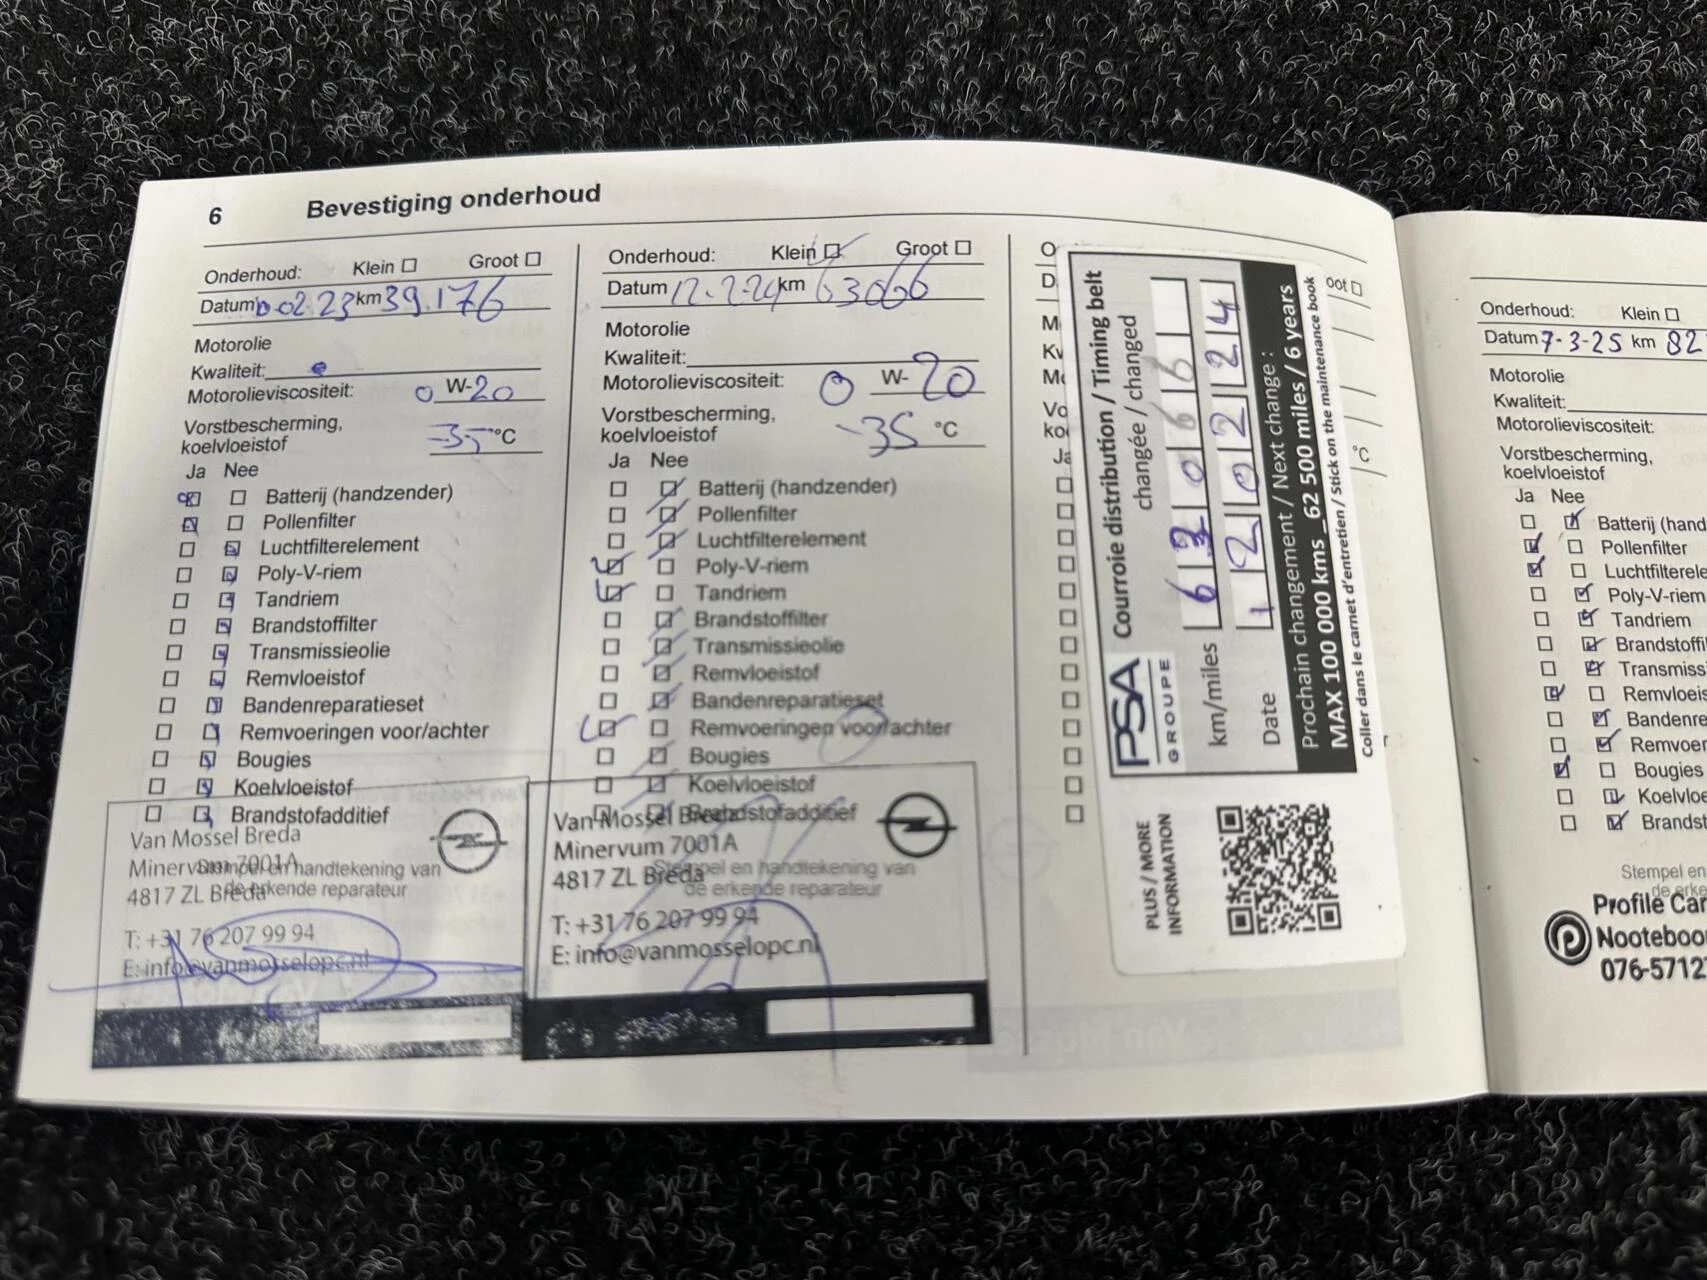 6 Bevestiging onderhoud
Onderhoud: Klein Groot
Datum 02.23 km 39.176
Motorolie
Kwaliteit:
Motorolieviscositeit: 0 W-20
Vorstbescherming,
koelvloeistof -35 °C
Ja Nee
Batterij (handzender)
Pollenfilter
Luchtfilterelement
Poly-V-riem
Tandriem
Brandstoffilter
Transmissieolie
Remvloeistof
Bandenreparatieset
Remvoeringen voor/achter
Bougies
Koelvloeistof
Brandstofadditief
Van Mossel Breda
Minervum 7001A
Stempel en handtekening van
4817 ZL Breda
de erkende reparateur
T: +31 76 207 99 94
E: info@vanmosselopc.nl
Onderhoud: Klein Groot
Datum 12-2-24 km 63066
Motorolie
Kwaliteit:
Motorolieviscositeit: 0 W-20
Vorstbescherming,
koelvloeistof -35 °C
Ja Nee
Batterij (handzender)
Pollenfilter
Luchtfilterelement
Poly-V-riem
Tandriem
Brandstoffilter
Transmissieolie
Remvloeistof
Bandenreparatieset
Remvoeringen voor/achter
Bougies
Koelvloeistof
Brandstofadditief
Van Mossel Breda
Minervum 7001A
Stempel en handtekening van
4817 ZL Breda
de erkende reparateur
T: +31 76 207 99 94
E: info@vanmosselopc.nl
O
D
M
Kv
Mo
Vo
ko
Ja
oot
°C
PSA
GROUPE
Courroie distribution / Timing belt
changée / changed
km/miles 63066
Date 120224
Prochain changement / Next change :
MAX 100 000 kms _ 62 500 miles / 6 years
Coller dans le carnet d'entretien / Stick on the maintenance book
PLUS / MORE
INFORMATION
Onderhoud: Klein
Datum 7-3-25 km 82
Motorolie
Kwaliteit:
Motorolieviscositeit:
Vorstbescherming,
koelvloeistof
Ja Nee
Batterij (hand
Pollenfilter
Luchtfiltere
Poly-V-riem
Tandriem
Brandstoffi
Transmiss
Remvloeis
Bandenre
Remvoer
Bougies
Koelvloe
Brandst
Stempel en
de erke
Profile Car
Nooteboo
076-5712